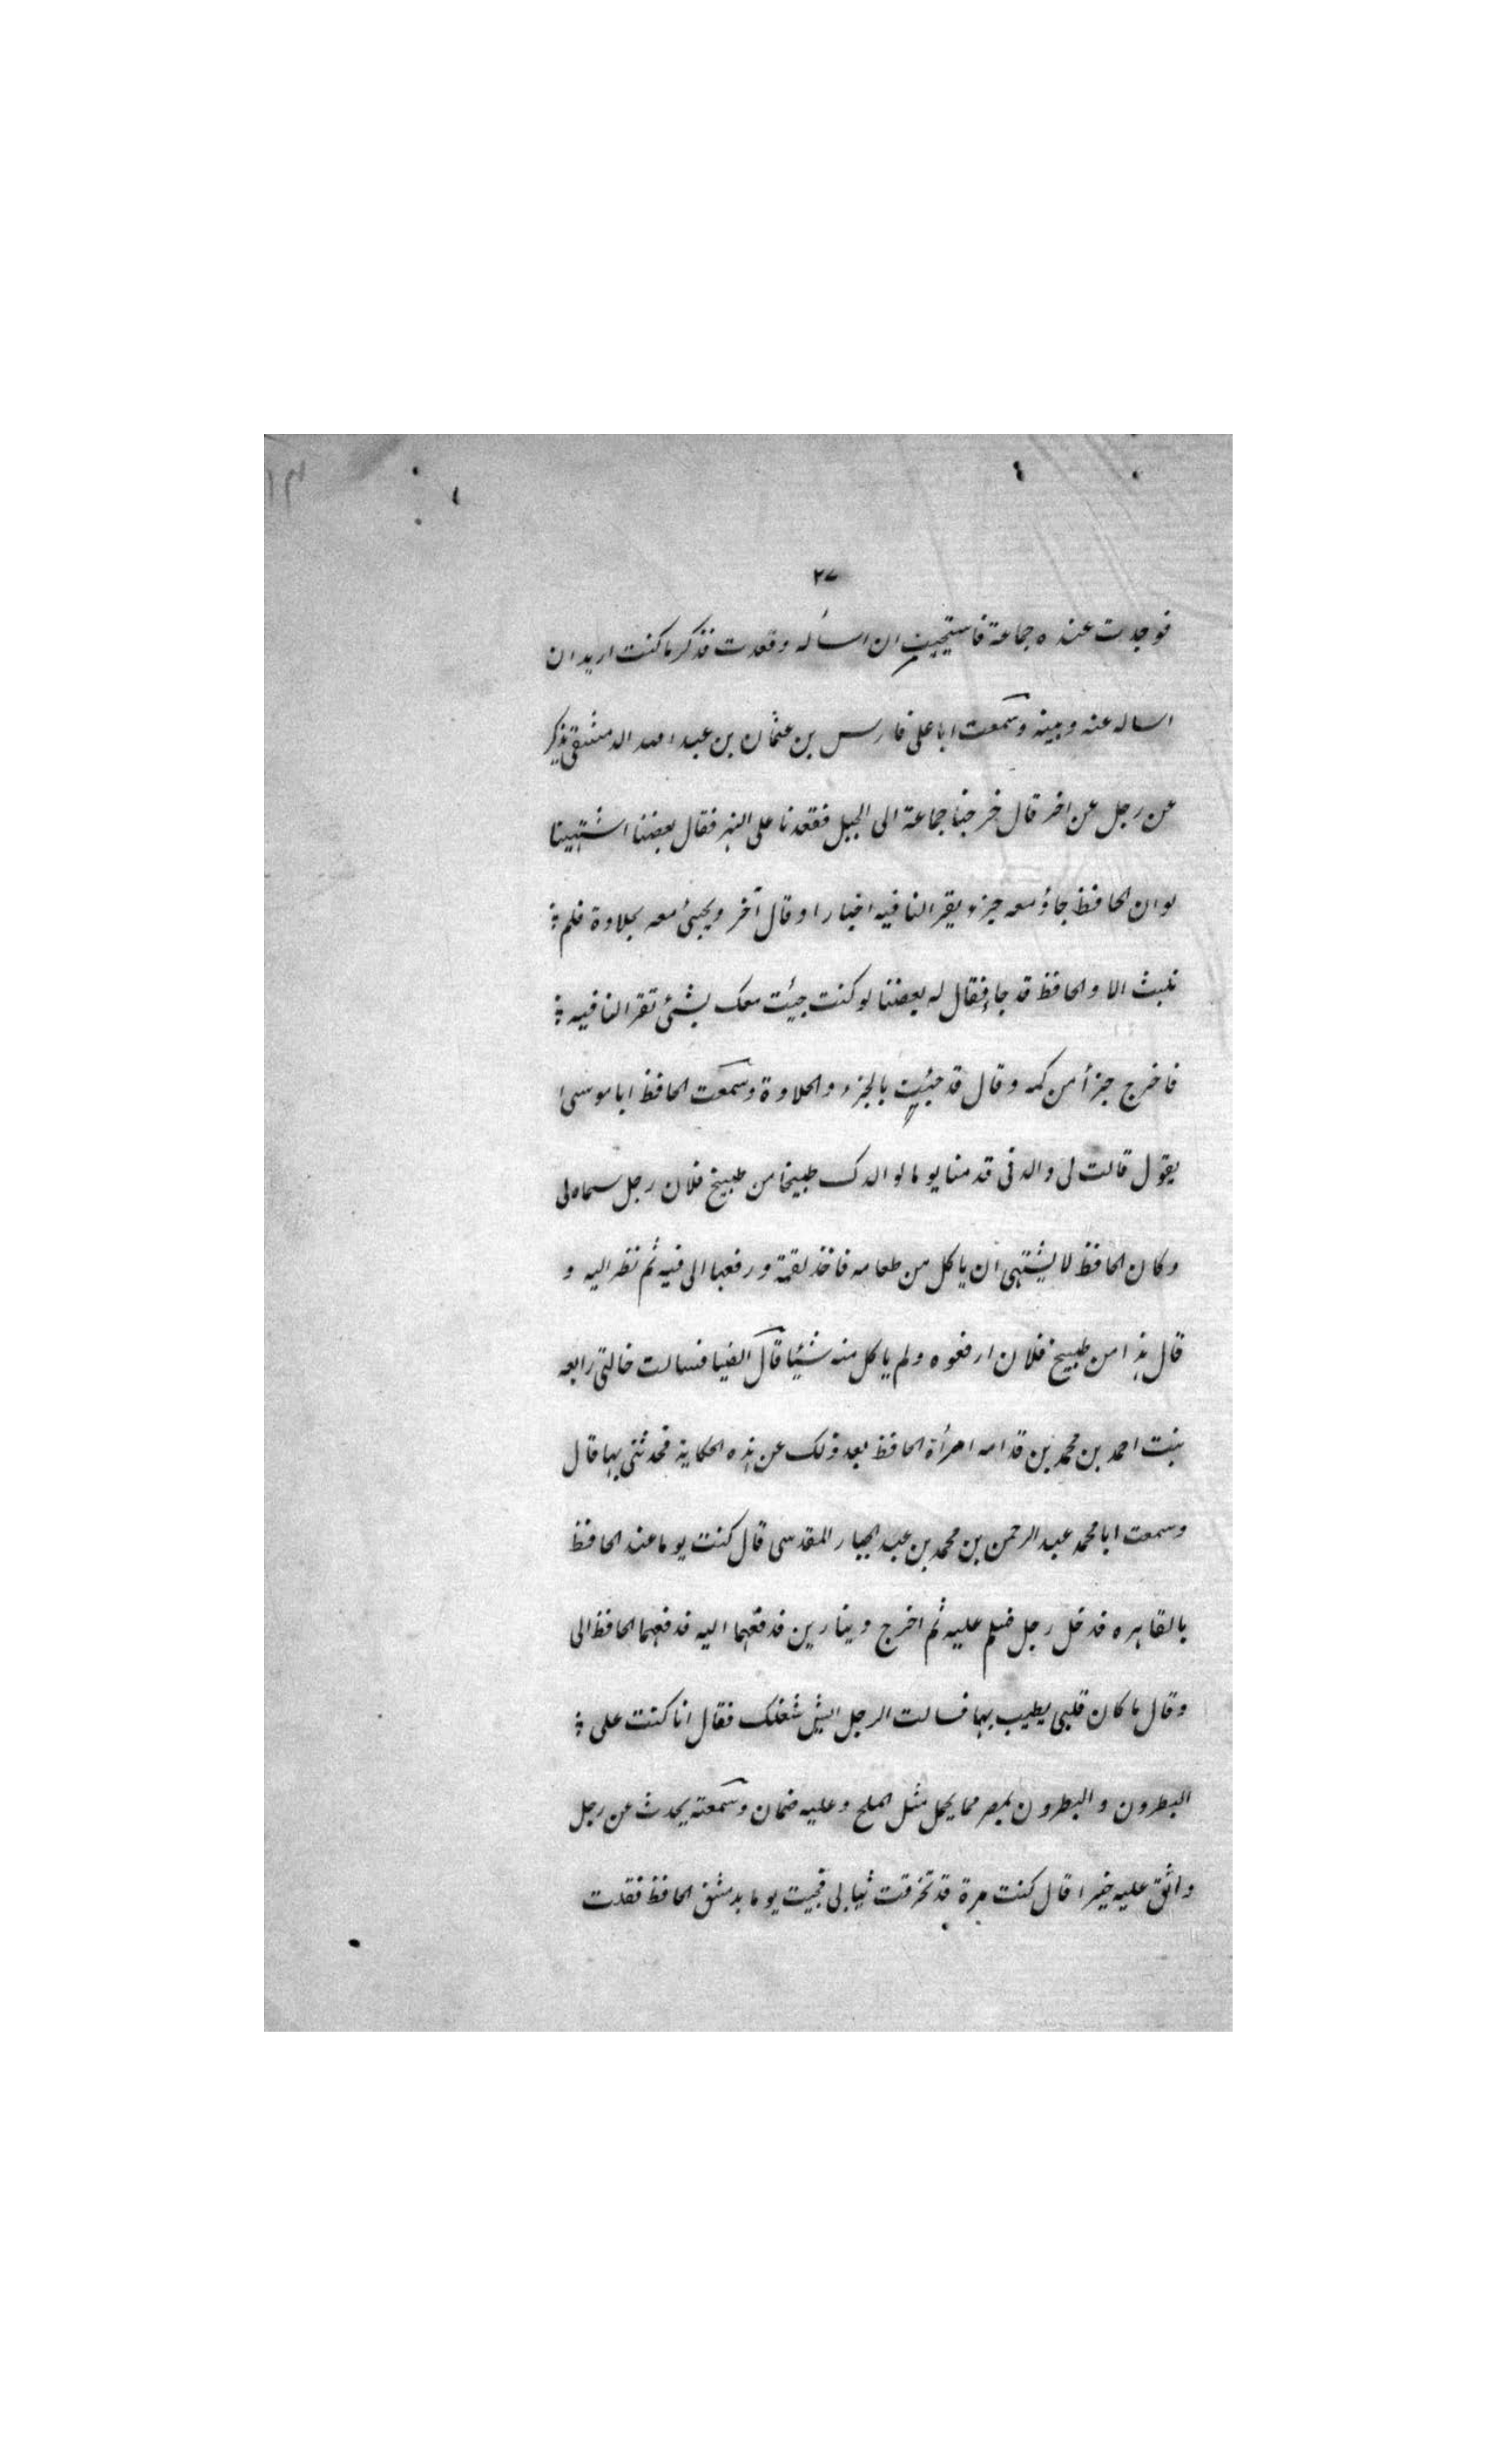 ٢٧
فوجدت عنده جماعة فاستحييت ان اسأله وقعدت فذكر ما كنت اريد ان
اساله عنه وبينه وسمعت ابا على فارس بن عثمان بن عبد الله الدمشقى يذكر
عن رجل عن اخر قال خرجنا جماعة الى الجبل فقعدنا على النهر فقال بعضنا اشتهينا
لو ان الحافظ جاؤ معه جزء يقرا لنا فيه اخبارا وقال آخر ويجيئ معه بحلاوة فلم
نلبث الا والحافظ قد جاء فقال له بعضنا لو كنت جيئت معك بشئ تقرا لنا فيه
فاخرج جزأ من كمه وقال قد جيئت بالجزء والحلاوة وسمعت الحافظ ابا موسى
يقول قالت لى والدتى قدمنا يوما لوالدك طبيخا من طبيخ فلان رجل سماه لى
وكان الحافظ لا يشتهى ان ياكل من طعامه فاخذ لقمة ورفعها الى فيه ثم نظر اليه و
قال هذا من طبيخ فلان ارفعوه ولم ياكل منه شيئا قال الضيا فسالت خالتى رابعه
بنت احمد بن محمد بن قدامه امرأة الحافظ بعد ذلك عن هذه الحكاية فحدثنى بها قال
وسمعت ابا محمد عبد الرحمن بن محمد بن عبد الجبار المقدسى قال كنت يوما عند الحافظ
بالقاهره فدخل رجل فسلم عليه ثم اخرج دينارين فدفعهما اليه فدفعهما الحافظ الى
وقال ما كان قلبى يطيب بها فسالت الرجل ايش شغلك فقال انا كنت على
البطرون والبطرون بمصر مما يحمل مثل الملح وعليه ضمان وسمعته يحدث عن رجل
واثق عليه خيرا قال كنت مرة قد تخرقت ثيابى فجيت يوما بدمشق الحافظ فقلت